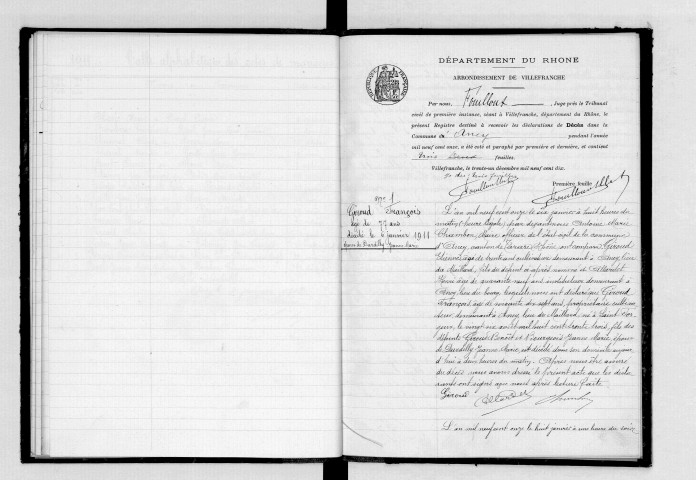 DÉPARTEMENT DU RHONE
ARRONDISSEMENT DE VILLEFRANCHE
Par nous, Fouilloux, Juge près le Tribunal
civil de première instance, séant à Villefranche, département du Rhône, le
présent Registre destiné à recevoir les déclarations de Décès dans la
Commune d'Ancy pendant l'année
mil neuf cent onze, a été coté et paraphé par première et dernière, et contient
feuilles.
Villefranche, le trente-un décembre mil neuf cent dix.
Première feuille
N° 1
Giroud François
âgé de 77 ans
décédé le 6 janvier 1911
époux de Jeanne Marie
L'an mil neuf cent onze le six janvier à huit heures du
matin, heure légale, par devant nous Antoine Marie
Chambon, Maire officier de l'état civil de la commune
d'Ancy, canton de Tarare Rhône ont comparu Giroud
âgé de trente ans cultivateur demeurant à Ancy, lieu
du Maillard, fils du défunt ci après nommé et
âgé de quarante neuf ans instituteur demeurant à
Ancy, lieu du bourg, lesquels nous ont déclaré que Giroud
François âgé de soixante dix sept ans, propriétaire culti-
vateur demeurant à Ancy lieu de Maillard, né à Saint
le vingt six avril mil huit cent trente trois, fils des
défunts Giroud Benoît et Bourgeois Jeanne Marie, époux
de Jeanne Marie, est décédé dans son domicile aujour
d'hui à deux heures du matin. Après nous être assuré
du décès nous avons dressé le présent acte que les décla-
rants ont signé avec nous après lecture faite.
Giroud
L'an mil neuf cent onze le huit janvier à une heure du soir